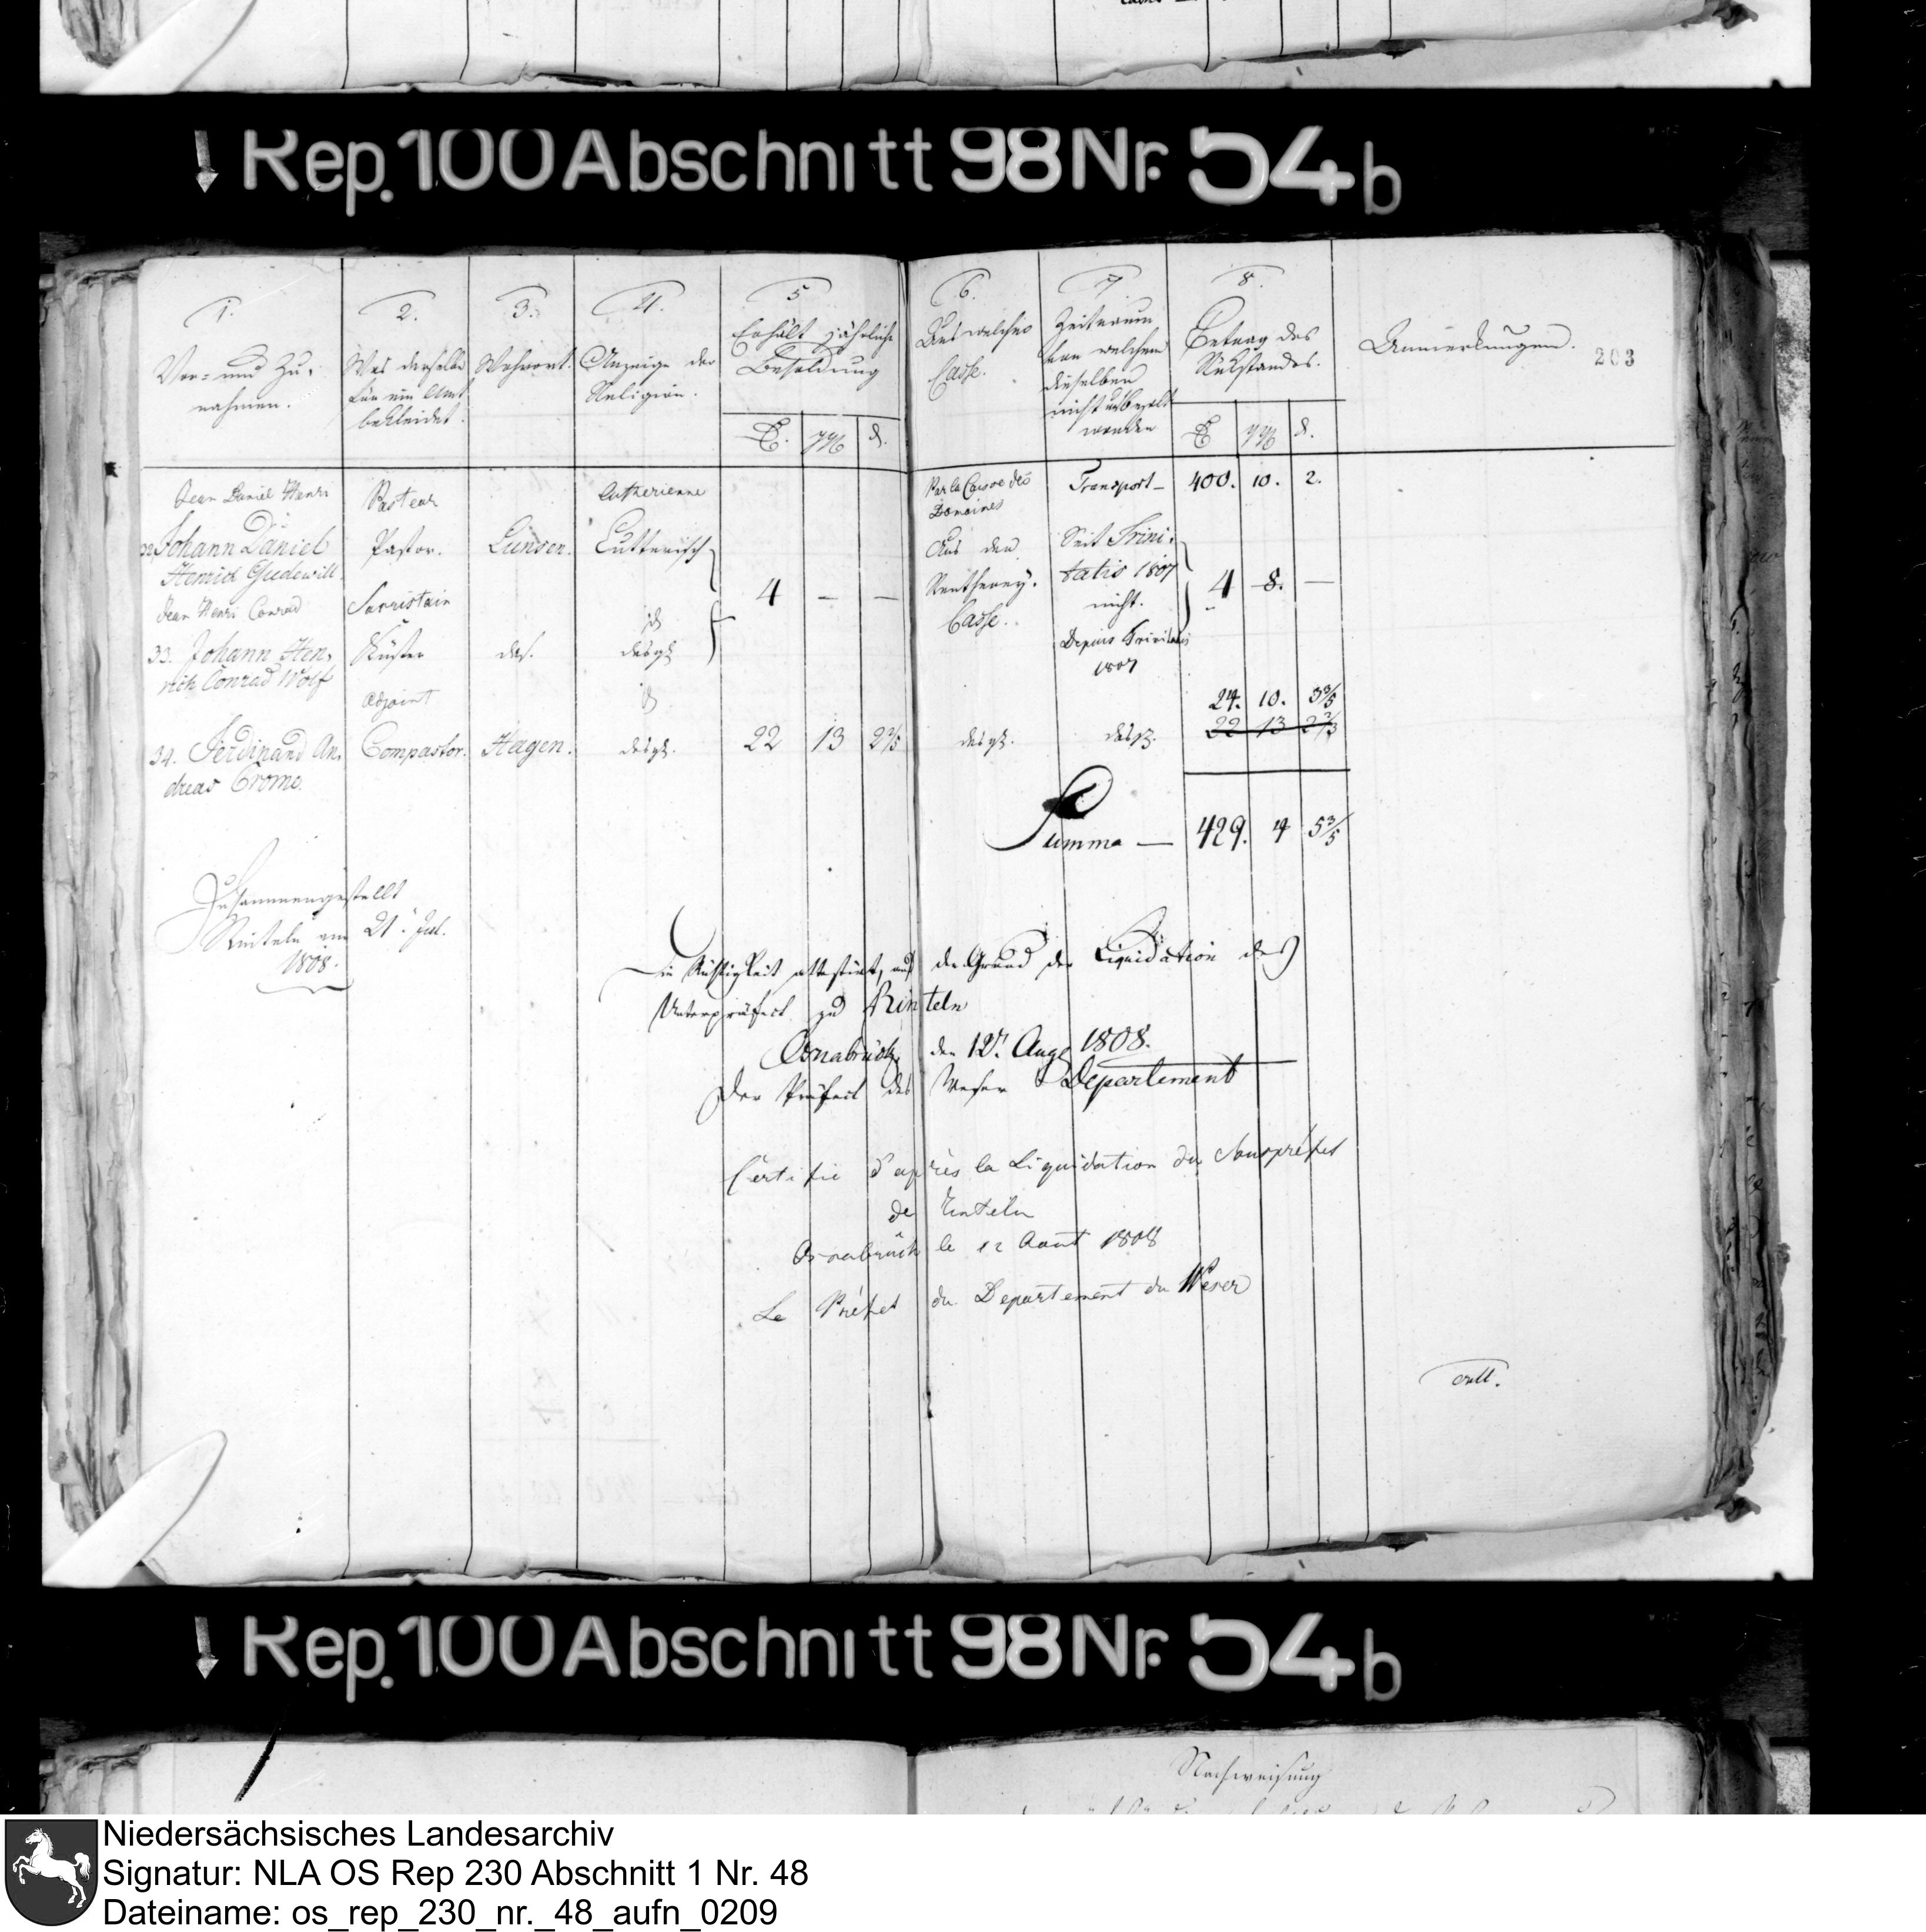 Rep. 100 Abschnitt 98 Nr. 54 b
1.
Vor- und Zu-
nahmen.
2.
Was derselbe
für ein Amt
bekleidet.
3.
Wohnort.
4.
Anzeige der
Religion.
5
Erhält jährliche
Besoldung
6.
Aus welcher
Casse.
7
Zeitraum
von welchem
dieselben
nicht bezalt
worden
8.
Betrag des
Rückstandes.
Anmerkungen.
203
Jean Daniel Henri
Pasteur
Lutherienne
Par la Caisse des
Domaines
Transport — 400. 10. 2.
32. Johann Daniel
Henrich Gudewill
Pastor.
Lunsen.
Lutterisch
Aus der
Rentherey.
Casse.
Seit Trini-
tatis 1807
nicht.
4 — —
4 8. —
Jean Henri Conrad
Sacristain
id
Depuis Trinitatis
1807
33. Johann Hen-
rich Conrad Wolf
Küster
das.
desgl.
Adjoint
id
24. 10. 3 3/5
34. Ferdinand An-
dreas Crome.
Compastor.
Hagen.
desgl.
22 13 2 2/5
desgl.
desgl.
22 13 2 2/3
Summa — 429. 4 5 3/5
Zusammengestellt
Rinteln am 21. Jul.
1808.
Die Richtigkeit attestirt, auf den Grund der Liquidation des
Unterpräfect zu Rinteln
Osnabrück, den 12. Aug 1808.
Der Präfect des Weser Departement
Certifie d'après la Liquidation du Souspréfet
de Rinteln
Osnabrück le 12 Aout 1808
Le Préfet du Departement du Weser
Rep. 100 Abschnitt 98 Nr. 54 b
Nachweisung
Niedersächsisches Landesarchiv
Signatur: NLA OS Rep 230 Abschnitt 1 Nr. 48
Dateiname: os_rep_230_nr._48_aufn_0209